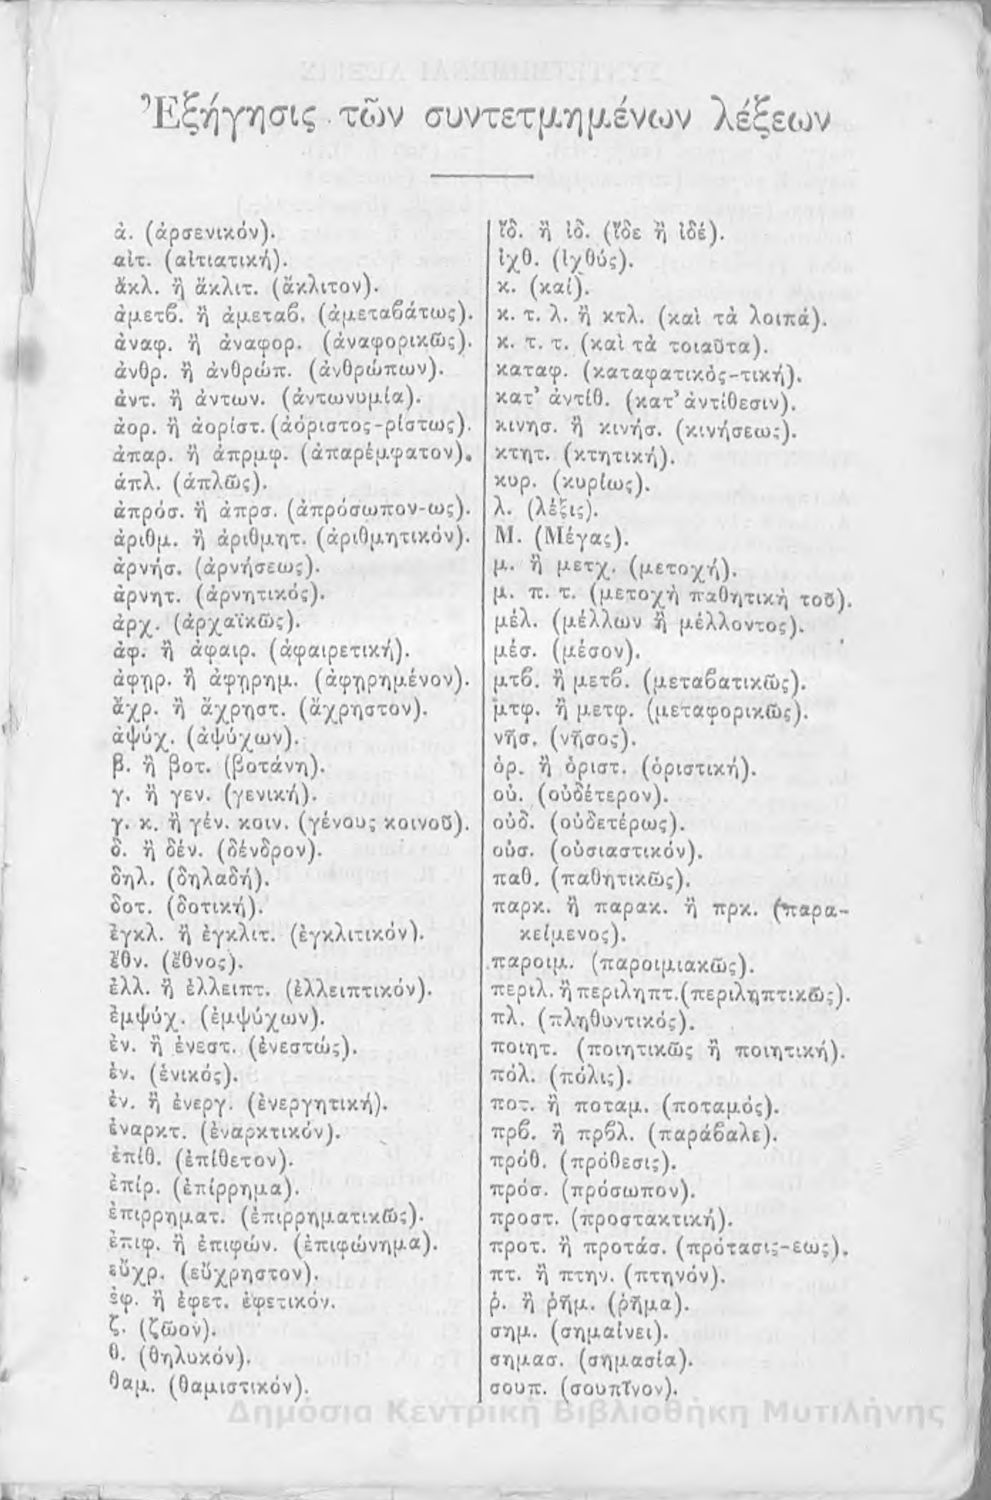 Ἐξήγησις τῶν συντετμημένων λέξεων
ἀ. (ἀρσενικόν).
αἰτ. (αἰτιατική).
ἄκλ. ἢ ἄκλιτ. (ἄκλιτον).
ἀμετϐ. ἢ ἀμεταϐ. (ἀμεταϐάτως).
ἀναφ. ἢ ἀναφορ. (ἀναφορικῶς).
ἀνθρ. ἢ ἀνθρώπ. (ἀνθρώπων).
ἀντ. ἢ ἀντων. (ἀντωνυμία).
ἀορ. ἢ ἀορίστ. (ἀόριστος-ρίστως).
ἀπαρ. ἢ ἀπρμφ. (ἀπαρέμφατον).
ἁπλ. (ἁπλῶς).
ἀπρόσ. ἢ ἀπρσ. (ἀπρόσωπον-ως).
ἀριθμ. ἢ ἀριθμητ. (ἀριθμητικόν).
ἀρνήσ. (ἀρνήσεως).
ἀρνητ. (ἀρνητικός).
ἀρχ. (ἀρχαϊκῶς).
ἀφ. ἢ ἀφαιρ. (ἀφαιρετική).
ἀφῃρ. ἢ ἀφῃρημ. (ἀφῃρημένον).
ἄχρ. ἢ ἄχρηστ. (ἄχρηστον).
ἀψύχ. (ἀψύχων).
β. ἢ βοτ. (βοτάνη).
γ. ἢ γεν. (γενική).
γ. κ. ἢ γέν. κοιν. (γένους κοινοῦ).
δ. ἢ δέν. (δένδρον).
δηλ. (δηλαδή).
δοτ. (δοτική).
ἐγκλ. ἢ ἐγκλιτ. (ἐγκλιτικόν).
ἔθν. (ἔθνος).
ἐλλ. ἢ ἐλλειπτ. (ἐλλειπτικόν).
ἐμψύχ. (ἐμψύχων).
ἐν. ἢ ἐνεστ. (ἐνεστώς).
ἑν. (ἑνικός).
ἐν. ἢ ἐνεργ. (ἐνεργητική).
ἐναρκτ. (ἐναρκτικόν).
ἐπίθ. (ἐπίθετον).
ἐπίρ. (ἐπίρρημα).
ἐπιρρηματ. (ἐπιρρηματικῶς).
ἐπιφ. ἢ ἐπιφών. (ἐπιφώνημα).
εὔχρ. (εὔχρηστον).
ἐφ. ἢ ἐφετ. ἐφετικόν.
ζ. (ζῶον).
θ. (θηλυκόν).
θαμ. (θαμιστικόν).
ἴδ. ἢ ἰδ. (ἴδε ἢ ἰδέ).
ἰχθ. (ἰχθύς).
κ. (καί).
κ. τ. λ. ἢ κτλ. (καὶ τὰ λοιπά).
κ. τ. τ. (καὶ τὰ τοιαῦτα).
καταφ. (καταφατικός-τική).
κατ’ ἀντίθ. (κατ’ ἀντίθεσιν).
κινησ. ἢ κινήσ. (κινήσεως).
κτητ. (κτητική).
κυρ. (κυρίως).
λ. (λέξις).
Μ. (Μέγας).
μ. ἢ μετχ. (μετοχή).
μ. π. τ. (μετοχὴ παθητικὴ τοῦ).
μέλ. (μέλλων ἢ μέλλοντος).
μέσ. (μέσον).
μτϐ. ἢ μετϐ. (μεταϐατικῶς).
μτφ. ἢ μετφ. (μεταφορικῶς).
νῆσ. (νῆσος).
ὁρ. ἢ ὁριστ. (ὁριστική).
οὐ. (οὐδέτερον).
οὐδ. (οὐδετέρως).
οὐσ. (οὐσιαστικόν).
παθ. (παθητικῶς).
παρκ. ἢ παρακ. ἢ πρκ. (παρα-
κείμενος).
παροιμ. (παροιμιακῶς).
περιλ. ἢ περιληπτ. (περιληπτικῶς).
πλ. (πληθυντικός).
ποιητ. (ποιητικῶς ἢ ποιητική).
πόλ. (πόλις).
ποτ. ἢ ποταμ. (ποταμός).
πρϐ. ἢ πρϐλ. (παράϐαλε).
πρόθ. (πρόθεσις).
πρόσ. (πρόσωπον).
προστ. (προστακτική).
προτ. ἢ προτάσ. (πρότασις-εως).
πτ. ἢ πτην. (πτηνόν).
ῥ. ἢ ῥῆμ. (ῥῆμα).
σημ. (σημαίνει).
σημασ. (σημασία).
σουπ. (σουπῖνον).
Δημόσια Κεντρική Βιβλιοθήκη Μυτιλήνης